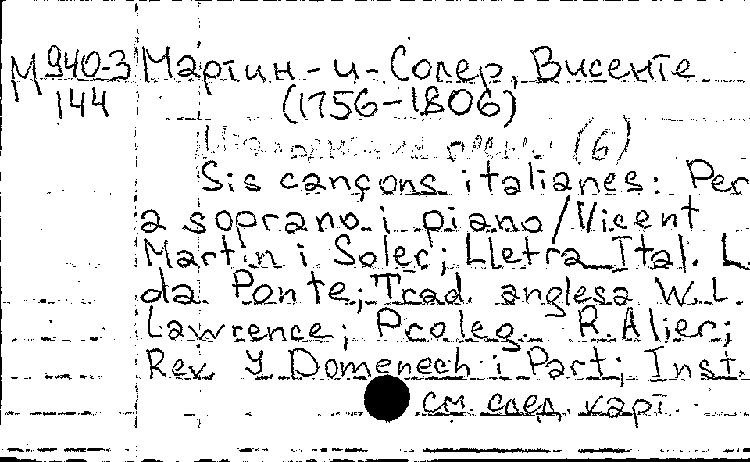 М 940-3 Мартин-и-Солер, Висенте
144 (1756-1806)
Итальянские песни (6)
Sis cançons italianes: Per
a soprano i piano/Vicent
Martin i Soler; Lletra Ital. L.
da Ponte; Trad. anglesa W.L.
Lawrence; Proleg. R. Alier;
Rev. Y Domenech i Part; Inst.
см. след. карт.